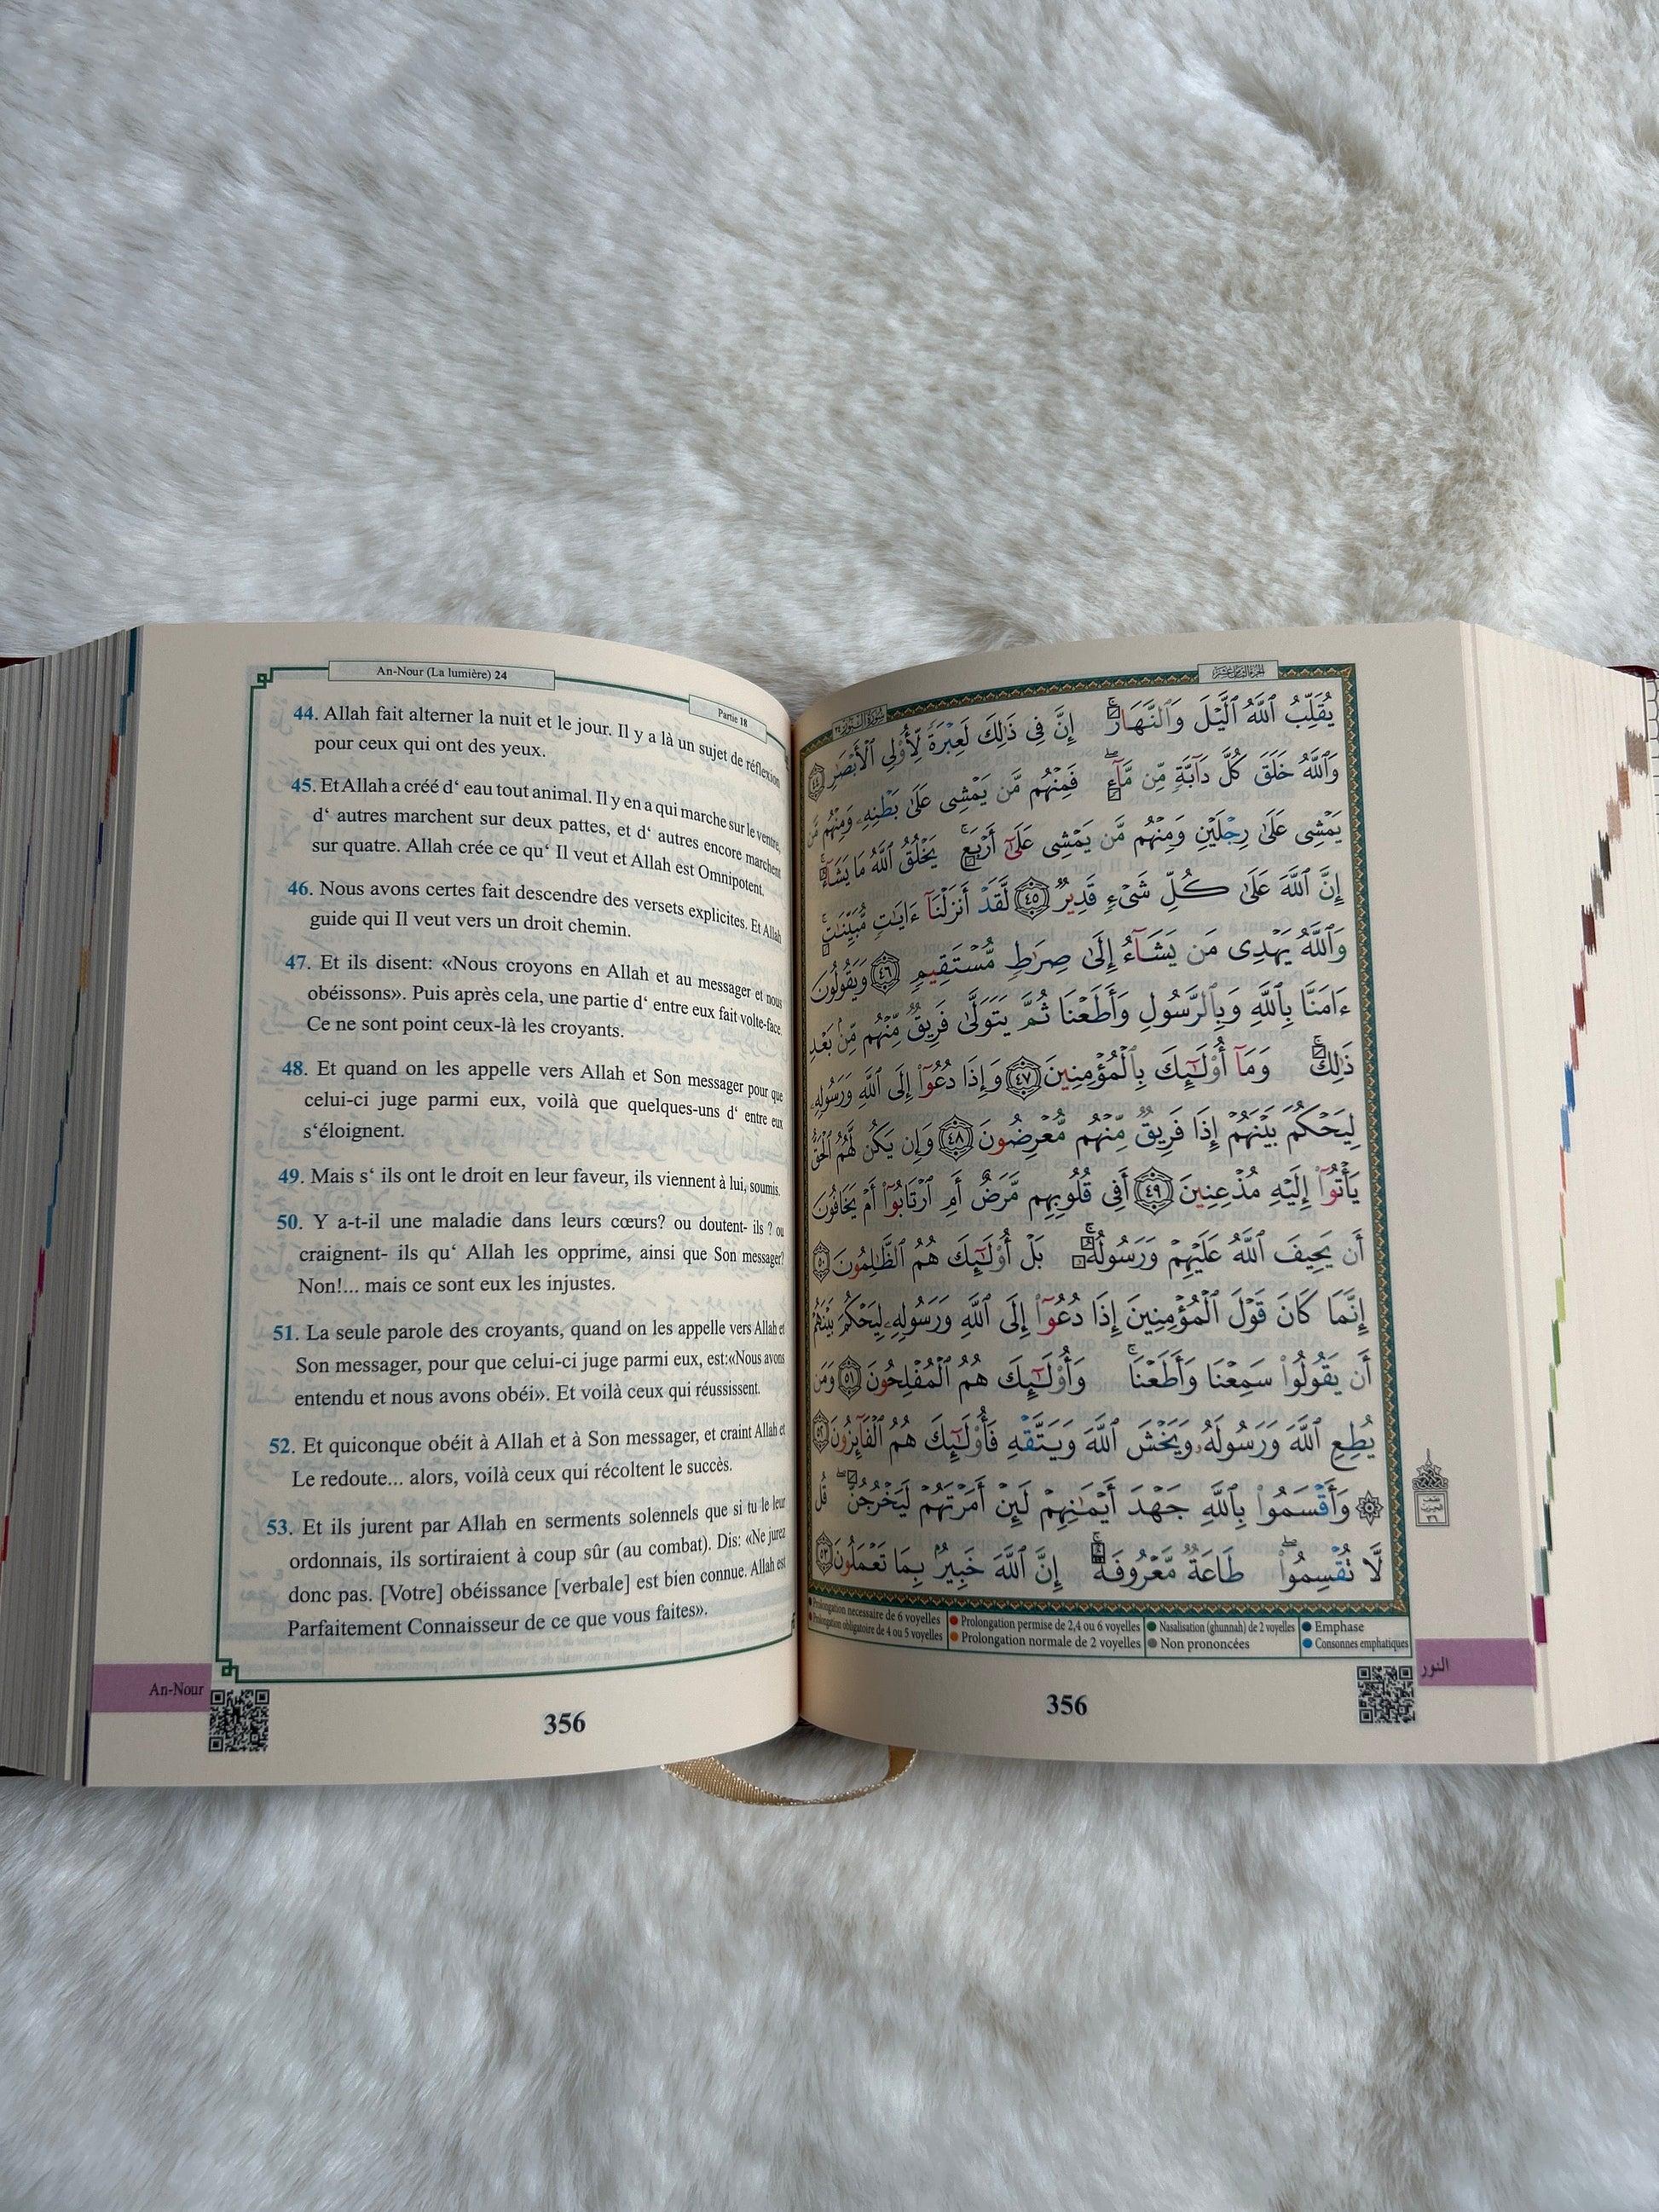 An-Nour (La lumière) 24
Partie 18
44. Allah fait alterner la nuit et le jour. Il y a là un sujet de réflexion
pour ceux qui ont des yeux.
45. Et Allah a créé d‘ eau tout animal. Il y en a qui marche sur le ventre,
d‘ autres marchent sur deux pattes, et d‘ autres encore marchent
sur quatre. Allah crée ce qu‘ Il veut et Allah est Omnipotent.
46. Nous avons certes fait descendre des versets explicites. Et Allah
guide qui Il veut vers un droit chemin.
47. Et ils disent: «Nous croyons en Allah et au messager et nous
obéissons». Puis après cela, une partie d‘ entre eux fait volte-face.
Ce ne sont point ceux-là les croyants.
48. Et quand on les appelle vers Allah et Son messager pour que
celui-ci juge parmi eux, voilà que quelques-uns d‘ entre eux
s‘éloignent.
49. Mais s‘ ils ont le droit en leur faveur, ils viennent à lui, soumis.
50. Y a-t-il une maladie dans leurs cœurs? ou doutent- ils ? ou
craignent- ils qu‘ Allah les opprime, ainsi que Son messager?
Non!... mais ce sont eux les injustes.
51. La seule parole des croyants, quand on les appelle vers Allah et
Son messager, pour que celui-ci juge parmi eux, est:«Nous avons
entendu et nous avons obéi». Et voilà ceux qui réussissent.
52. Et quiconque obéit à Allah et à Son messager, et craint Allah et
Le redoute... alors, voilà ceux qui récoltent le succès.
53. Et ils jurent par Allah en serments solennels que si tu le leur
ordonnais, ils sortiraient à coup sûr (au combat). Dis: «Ne jurez
donc pas. [Votre] obéissance [verbale] est bien connue. Allah est
Parfaitement Connaisseur de ce que vous faites».
An-Nour
356
يُقَلِّبُ ٱللَّهُ ٱلَّيْلَ وَٱلنَّهَارَ ۚ إِنَّ فِى ذَٰلِكَ لَعِبْرَةً لِّأُو۟لِى ٱلْأَبْصَٰرِ ٤٤
وَٱللَّهُ خَلَقَ كُلَّ دَآبَّةٍ مِّن مَّآءٍ ۖ فَمِنْهُم مَّن يَمْشِى عَلَىٰ بَطْنِهِۦ وَمِنْهُم مَّن
يَمْشِى عَلَىٰ رِجْلَيْنِ وَمِنْهُم مَّن يَمْشِى عَلَىٰٓ أَرْبَعٍ ۚ يَخْلُقُ ٱللَّهُ مَا يَشَآءُ ۚ
إِنَّ ٱللَّهَ عَلَىٰ كُلِّ شَىْءٍ قَدِيرٌ ٤٥ لَّقَدْ أَنزَلْنَآ ءَايَٰتٍ مُّبَيِّنَٰتٍ ۚ
وَٱللَّهُ يَهْدِى مَن يَشَآءُ إِلَىٰ صِرَٰطٍ مُّسْتَقِيمٍ ٤٦ وَيَقُولُونَ
ءَامَنَّا بِٱللَّهِ وَبِٱلرَّسُولِ وَأَطَعْنَا ثُمَّ يَتَوَلَّىٰ فَرِيقٌ مِّنْهُم مِّنۢ بَعْدِ
ذَٰلِكَ ۚ وَمَآ أُو۟لَٰٓئِكَ بِٱلْمُؤْمِنِينَ ٤٧ وَإِذَا دُعُوٓا۟ إِلَى ٱللَّهِ وَرَسُولِهِۦ
لِيَحْكُمَ بَيْنَهُمْ إِذَا فَرِيقٌ مِّنْهُم مُّعْرِضُونَ ٤٨ وَإِن يَكُن لَّهُمُ ٱلْحَقُّ
يَأْتُوٓا۟ إِلَيْهِ مُذْعِنِينَ ٤٩ أَفِى قُلُوبِهِم مَّرَضٌ أَمِ ٱرْتَابُوٓا۟ أَمْ يَخَافُونَ
أَن يَحِيفَ ٱللَّهُ عَلَيْهِمْ وَرَسُولُهُۥ ۚ بَلْ أُو۟لَٰٓئِكَ هُمُ ٱلظَّٰلِمُونَ ٥٠
إِنَّمَا كَانَ قَوْلَ ٱلْمُؤْمِنِينَ إِذَا دُعُوٓا۟ إِلَى ٱللَّهِ وَرَسُولِهِۦ لِيَحْكُمَ بَيْنَهُمْ
أَن يَقُولُوا۟ سَمِعْنَا وَأَطَعْنَا ۚ وَأُو۟لَٰٓئِكَ هُمُ ٱلْمُفْلِحُونَ ٥١ وَمَن
يُطِعِ ٱللَّهَ وَرَسُولَهُۥ وَيَخْشَ ٱللَّهَ وَيَتَّقْهِ فَأُو۟لَٰٓئِكَ هُمُ ٱلْفَآئِزُونَ ٥٢
۞ وَأَقْسَمُوا۟ بِٱللَّهِ جَهْدَ أَيْمَٰنِهِمْ لَئِنْ أَمَرْتَهُمْ لَيَخْرُجُنَّ ۖ قُل
لَّا تُقْسِمُوا۟ ۖ طَاعَةٌ مَّعْرُوفَةٌ ۚ إِنَّ ٱللَّهَ خَبِيرٌۢ بِمَا تَعْمَلُونَ ٥٣
Prolongation necessaire de 6 voyelles
Prolongation obligatoire de 4 ou 5 voyelles
Prolongation permise de 2,4 ou 6 voyelles
Prolongation normale de 2 voyelles
Nasalisation (ghunnah) de 2 voyelles
Non prononcées
Emphase
Consonnes emphatiques
النور
356